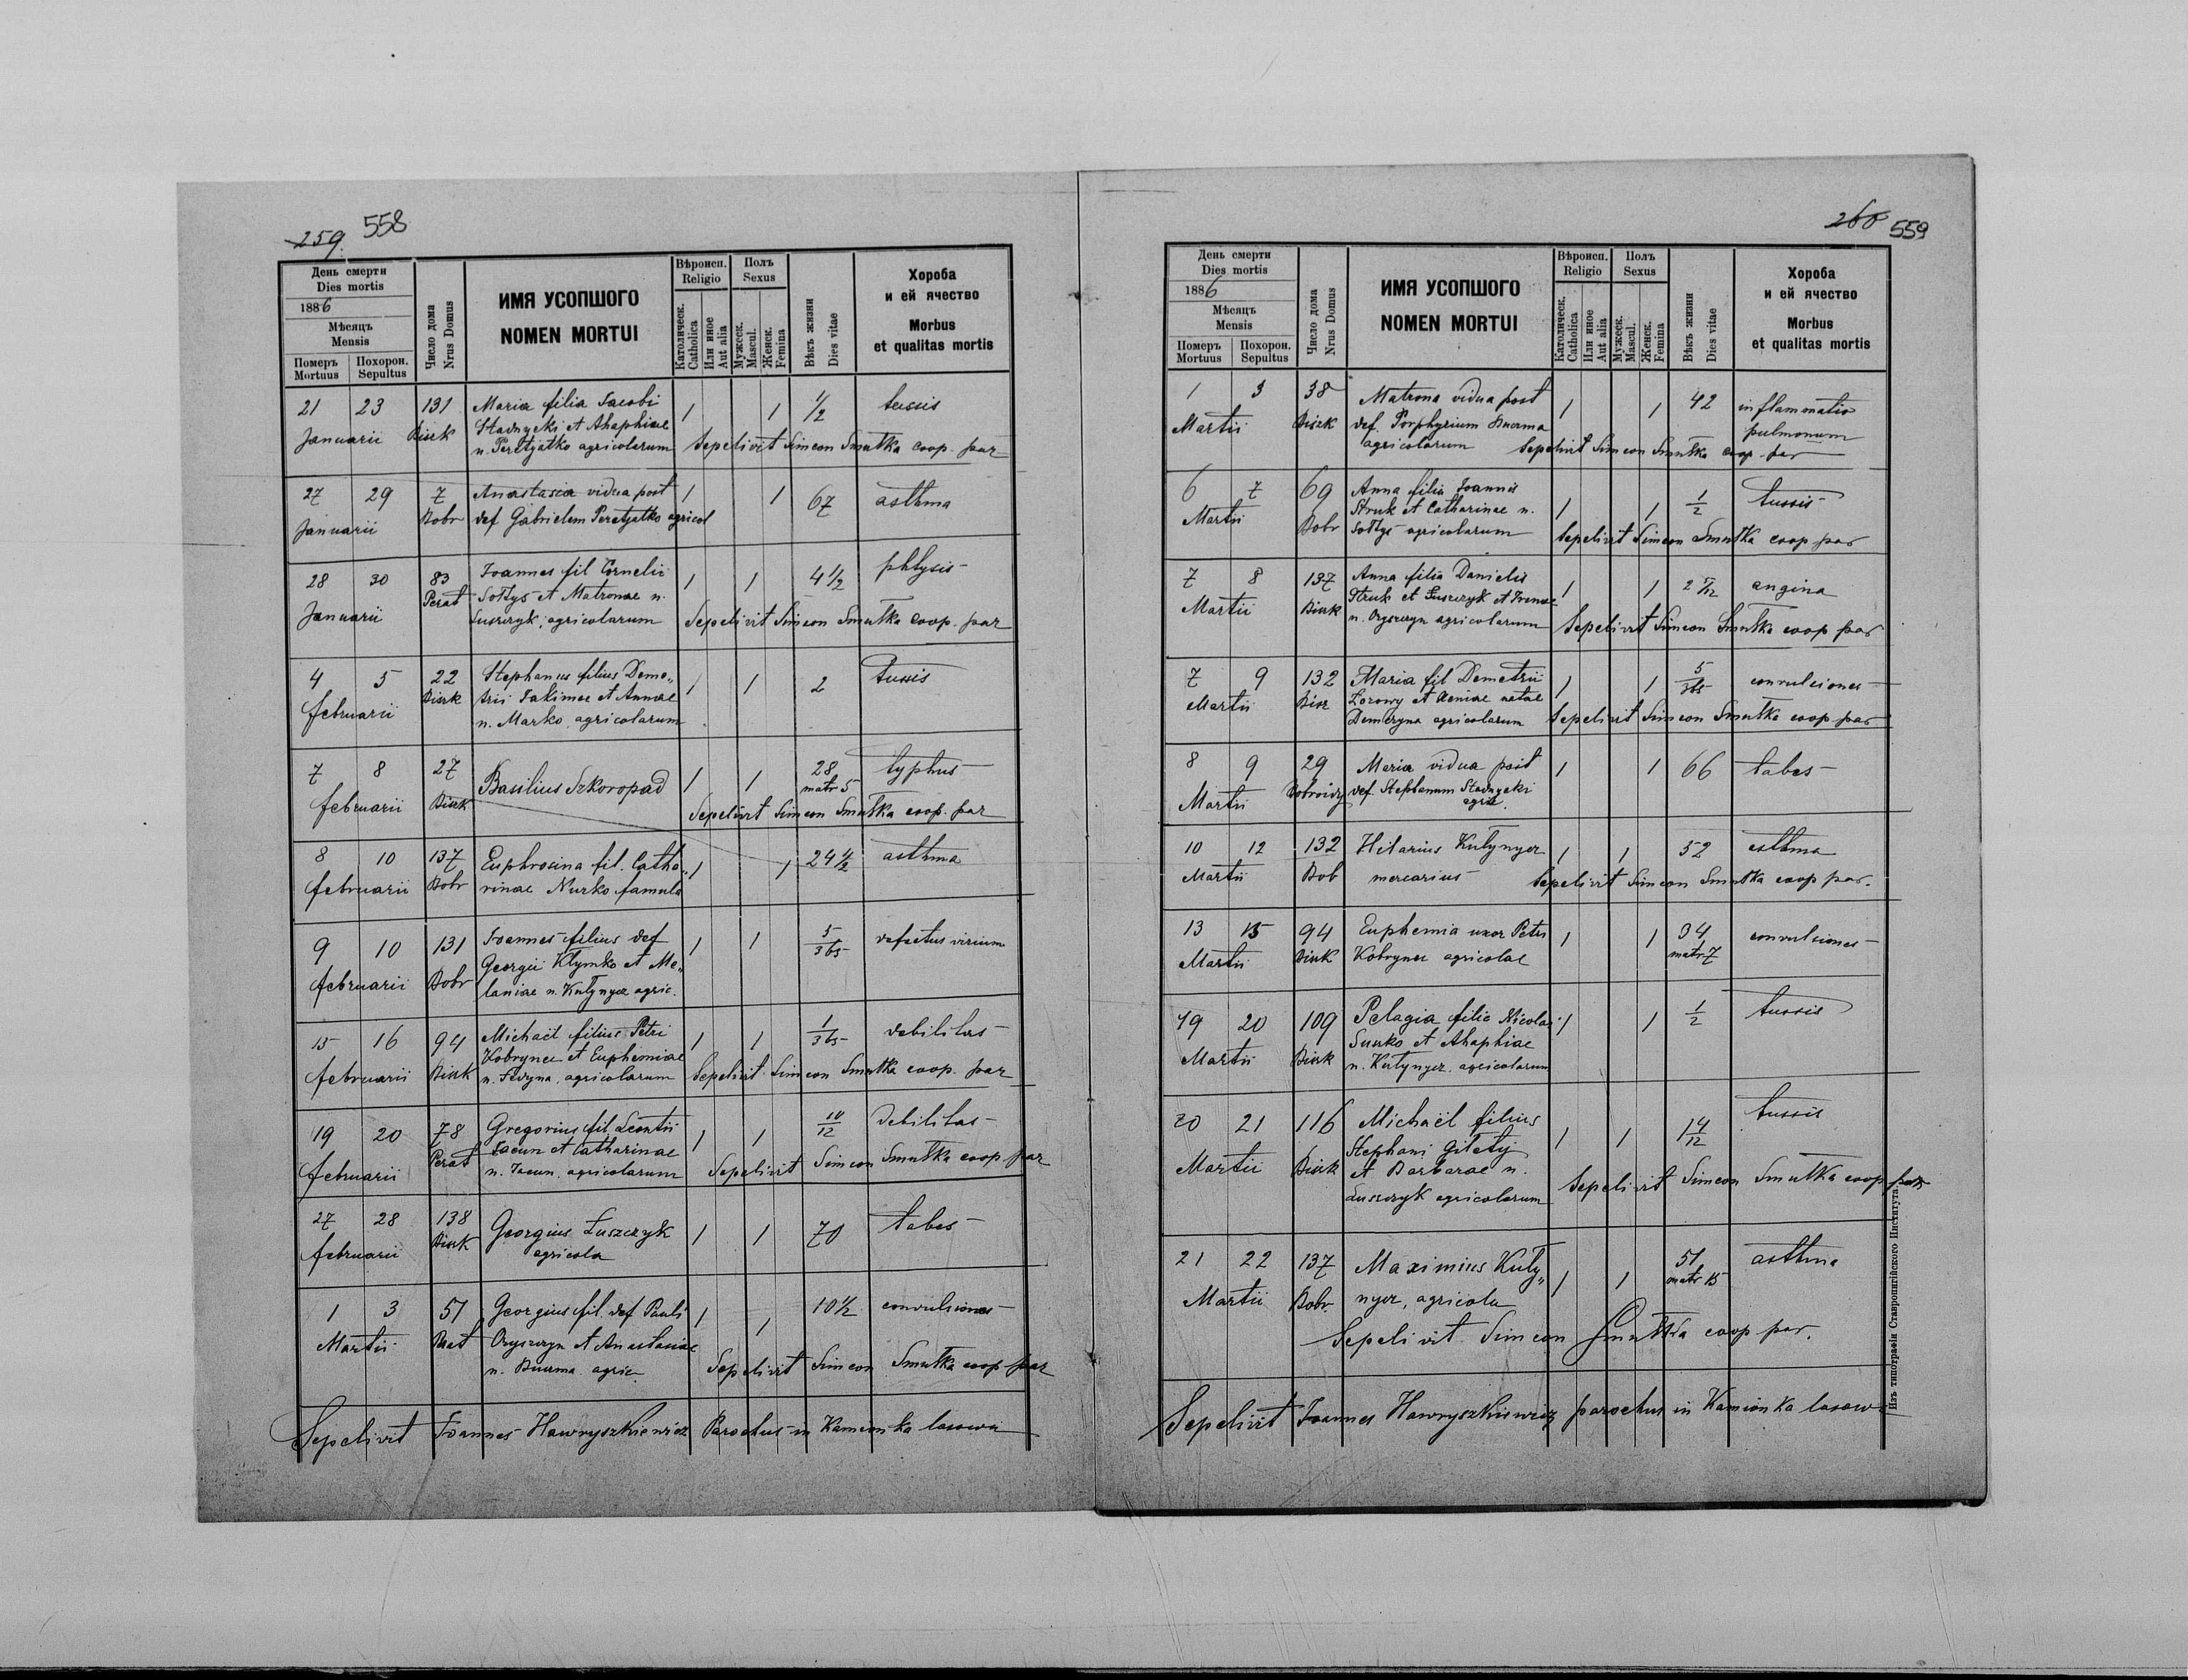 259. 558
День смерти
Dies mortis
1886
Мѣсяцъ
Mensis
Померъ
Mortuus
Похорон.
Sepultus
Число дома
Nrus Domus
ИМЯ УСОПШОГО
NOMEN MORTUI
Вѣроисп.
Religio
Католическ.
Catholica
Или иное
Aut alia
Полъ
Sexus
Мужеск.
Mascul.
Женск.
Femina
Вѣкъ жизни
Dies vitae
Хороба
и ей ячество
Morbus
et qualitas mortis
21 23 131 Maria filia Jacobi 1 1 1/2 tussis
Januarii Bisek Stadnycki et Ahaphiae
n. Peretyatko agricolarum Sepelivit Simeon Smutka coop. par
27 29 7 Anastasia vidua post 1 1 67 asthma
Januarii Bobr def Gabrielem Peretyatko agricol
28 30 83 Joannes fil Cornelii 1 1 4 1/2 phtysis
Januarii Perat Sołtys et Matronae n.
Łuszczyk, agricolarum Sepelivit Simeon Smutka coop. par
4 5 22 Stephanus filius Deme„ 1 1 2 tussis
februarii Bisek trii Jakimec et Annae
n. Marko, agricolarum
7 8 27 Basilius Szkoropad 1 1 28 typhus
februarii Bisek matr 5
Sepelivit Simeon Smutka coop. par
8 10 137 Euphrosina fil. Catha„ 1 1 24 1/2 asthma
februarii Bobr rinae Nurko famula
9 10 131 Joannes filius def 1 1 5/365 defectus virium
februarii Bobr Georgii Klymko et Me„
laniae n. Kutynycz agric.
15 16 94 Michaël filius Petri 1 1 1/365 debilitas
februarii Bisek Kobrynec et Euphemiae
n. Fedyna, agricolarum Sepelivit Simeon Smutka coop. par
19 20 78 Gregorius fil Leontii 1 1 10/12 debilitas
februarii Perat Jacun et Catharinae
n. Jacun, agricolarum Sepelivit Simeon Smutka coop. par
27 28 138 Georgius Łuszczyk 1 1 70 tabes
februarii Bisek agricola
1 3 51 Georgius fil. def Pauli 1 1 10 1/2 convulsiones
Martii Oryszczyn et Anastasiae
n. Buurma agric. Sepelivit Simeon Smutka coop par
Sepelivit Joannes Hawryszkiewicz Parochus in Kamionka lasowa
260 559
День смерти
Dies mortis
1886
Мѣсяцъ
Mensis
Померъ
Mortuus
Похорон.
Sepultus
Число дома
Nrus Domus
ИМЯ УСОПШОГО
NOMEN MORTUI
Вѣроисп.
Religio
Католическ.
Catholica
Или иное
Aut alia
Полъ
Sexus
Мужеск.
Mascul.
Женск.
Femina
Вѣкъ жизни
Dies vitae
Хороба
и ей ячество
Morbus
et qualitas mortis
1 3 38 Matrona vidua post 1 1 42 inflammatio
Martii Bisek def. Porphyrium Buurma pulmonum
agricolarum Sepelivit Simeon Smutka coop. par
6 7 69 Anna filia Joannis 1 1 1/2 tussis
Martii Bobr Struk et Catharinae n.
Sołtys agricolarum Sepelivit Simeon Smutka coop par
7 8 137 Anna filia Danielis 1 1 angina
Martii Bisek Struk et Łuszczyk et Irenae
n. Oryszczyn agricolarum Sepelivit Simeon Smutka coop par
7 9 132 Maria fil Demetrii 1 1 5/365 convulsiones
Martii Bisz Łozowy et Xeniae natae
Demczyna agricolarum Sepelivit Simeon Smutka coop par
8 9 29 Maria vidua post 1 1 66 tabes
Martii def. Stephanum Stadnycki
agric.
10 12 132 Hilarius Kutynycz 1 1 52 asthma
Martii Bob mercarius Sepelivit Simeon Smutka coop par.
13 15 94 Euphemia uxor Petri 1 1 34 convulsiones
Martii Bisek Kobrynec agricolae matr 7
19 20 109 Pelagia filia Nicolai 1 1 1/2 tussis
Martii Bisek Suszko et Ahaphiae
n. Kutynycz, agricolarum
20 21 116 Michaël filius 1 1 14/12 tussis
Martii Bisek Stephani Gitety
et Barbarae n.
Łuszczyk agricolarum Sepelivit Simeon Smutka coop par
21 22 137 Maximius Kuty„ 1 1 51 asthma
Martii Bobr. nycz, agricola matr 15
Sepelivit Simeon Smutka coop par.
Sepelivit Joannes Hawryszkiewicz parochus in Kamionka lasowa
Изъ типографіи Ставропигійского Института.